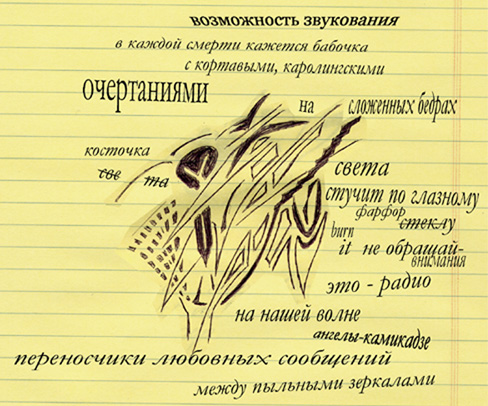 возможность звукования
в каждой смерти кажется бабочка
с кортавыми, каролингскими
очертаниями на сложенных бедрах
косточка
све та света
стучит по глазному
фарфор стеклу
burn
it не обращай-
внимания
это - радио
на нашей волне
ангелы-камикадзе
переносчики любовных сообщений
между пыльными зеркалами